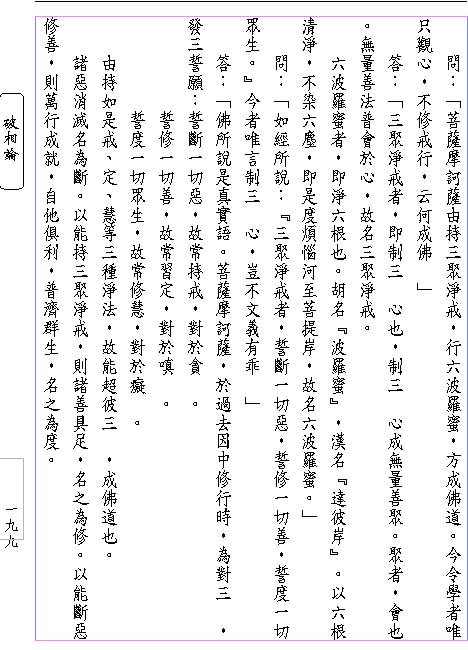 問：「菩薩摩訶薩由持三聚淨戒，行六波羅蜜，方成佛道。今令學者唯
只觀心，不修戒行，云何成佛　」
答：「三聚淨戒者，即制三　心也，制三　心成無量善聚。聚者，會也
。無量善法普會於心，故名三聚淨戒。
六波羅蜜者，即淨六根也。胡名『波羅蜜』，漢名『達彼岸』。以六根
清淨，不染六塵，即是度煩惱河至菩提岸，故名六波羅蜜。」
問：「如經所說：『三聚淨戒者，誓斷一切惡，誓修一切善，誓度一切
眾生。』今者唯言制三　心，豈不文義有乖　」
答：「佛所說是真實語。菩薩摩訶薩，於過去因中修行時，為對三　，
發三誓願：誓斷一切惡，故常持戒，對於貪　。
誓修一切善，故常習定，對於嗔　。
誓度一切眾生，故常修慧，對於癡　。
由持如是戒、定、慧等三種淨法，故能超彼三　，成佛道也。
諸惡消滅名為斷。以能持三聚淨戒，則諸善具足，名之為修。以能斷惡
修善，則萬行成就，自他俱利，普濟群生，名之為度。
破相論
一九九